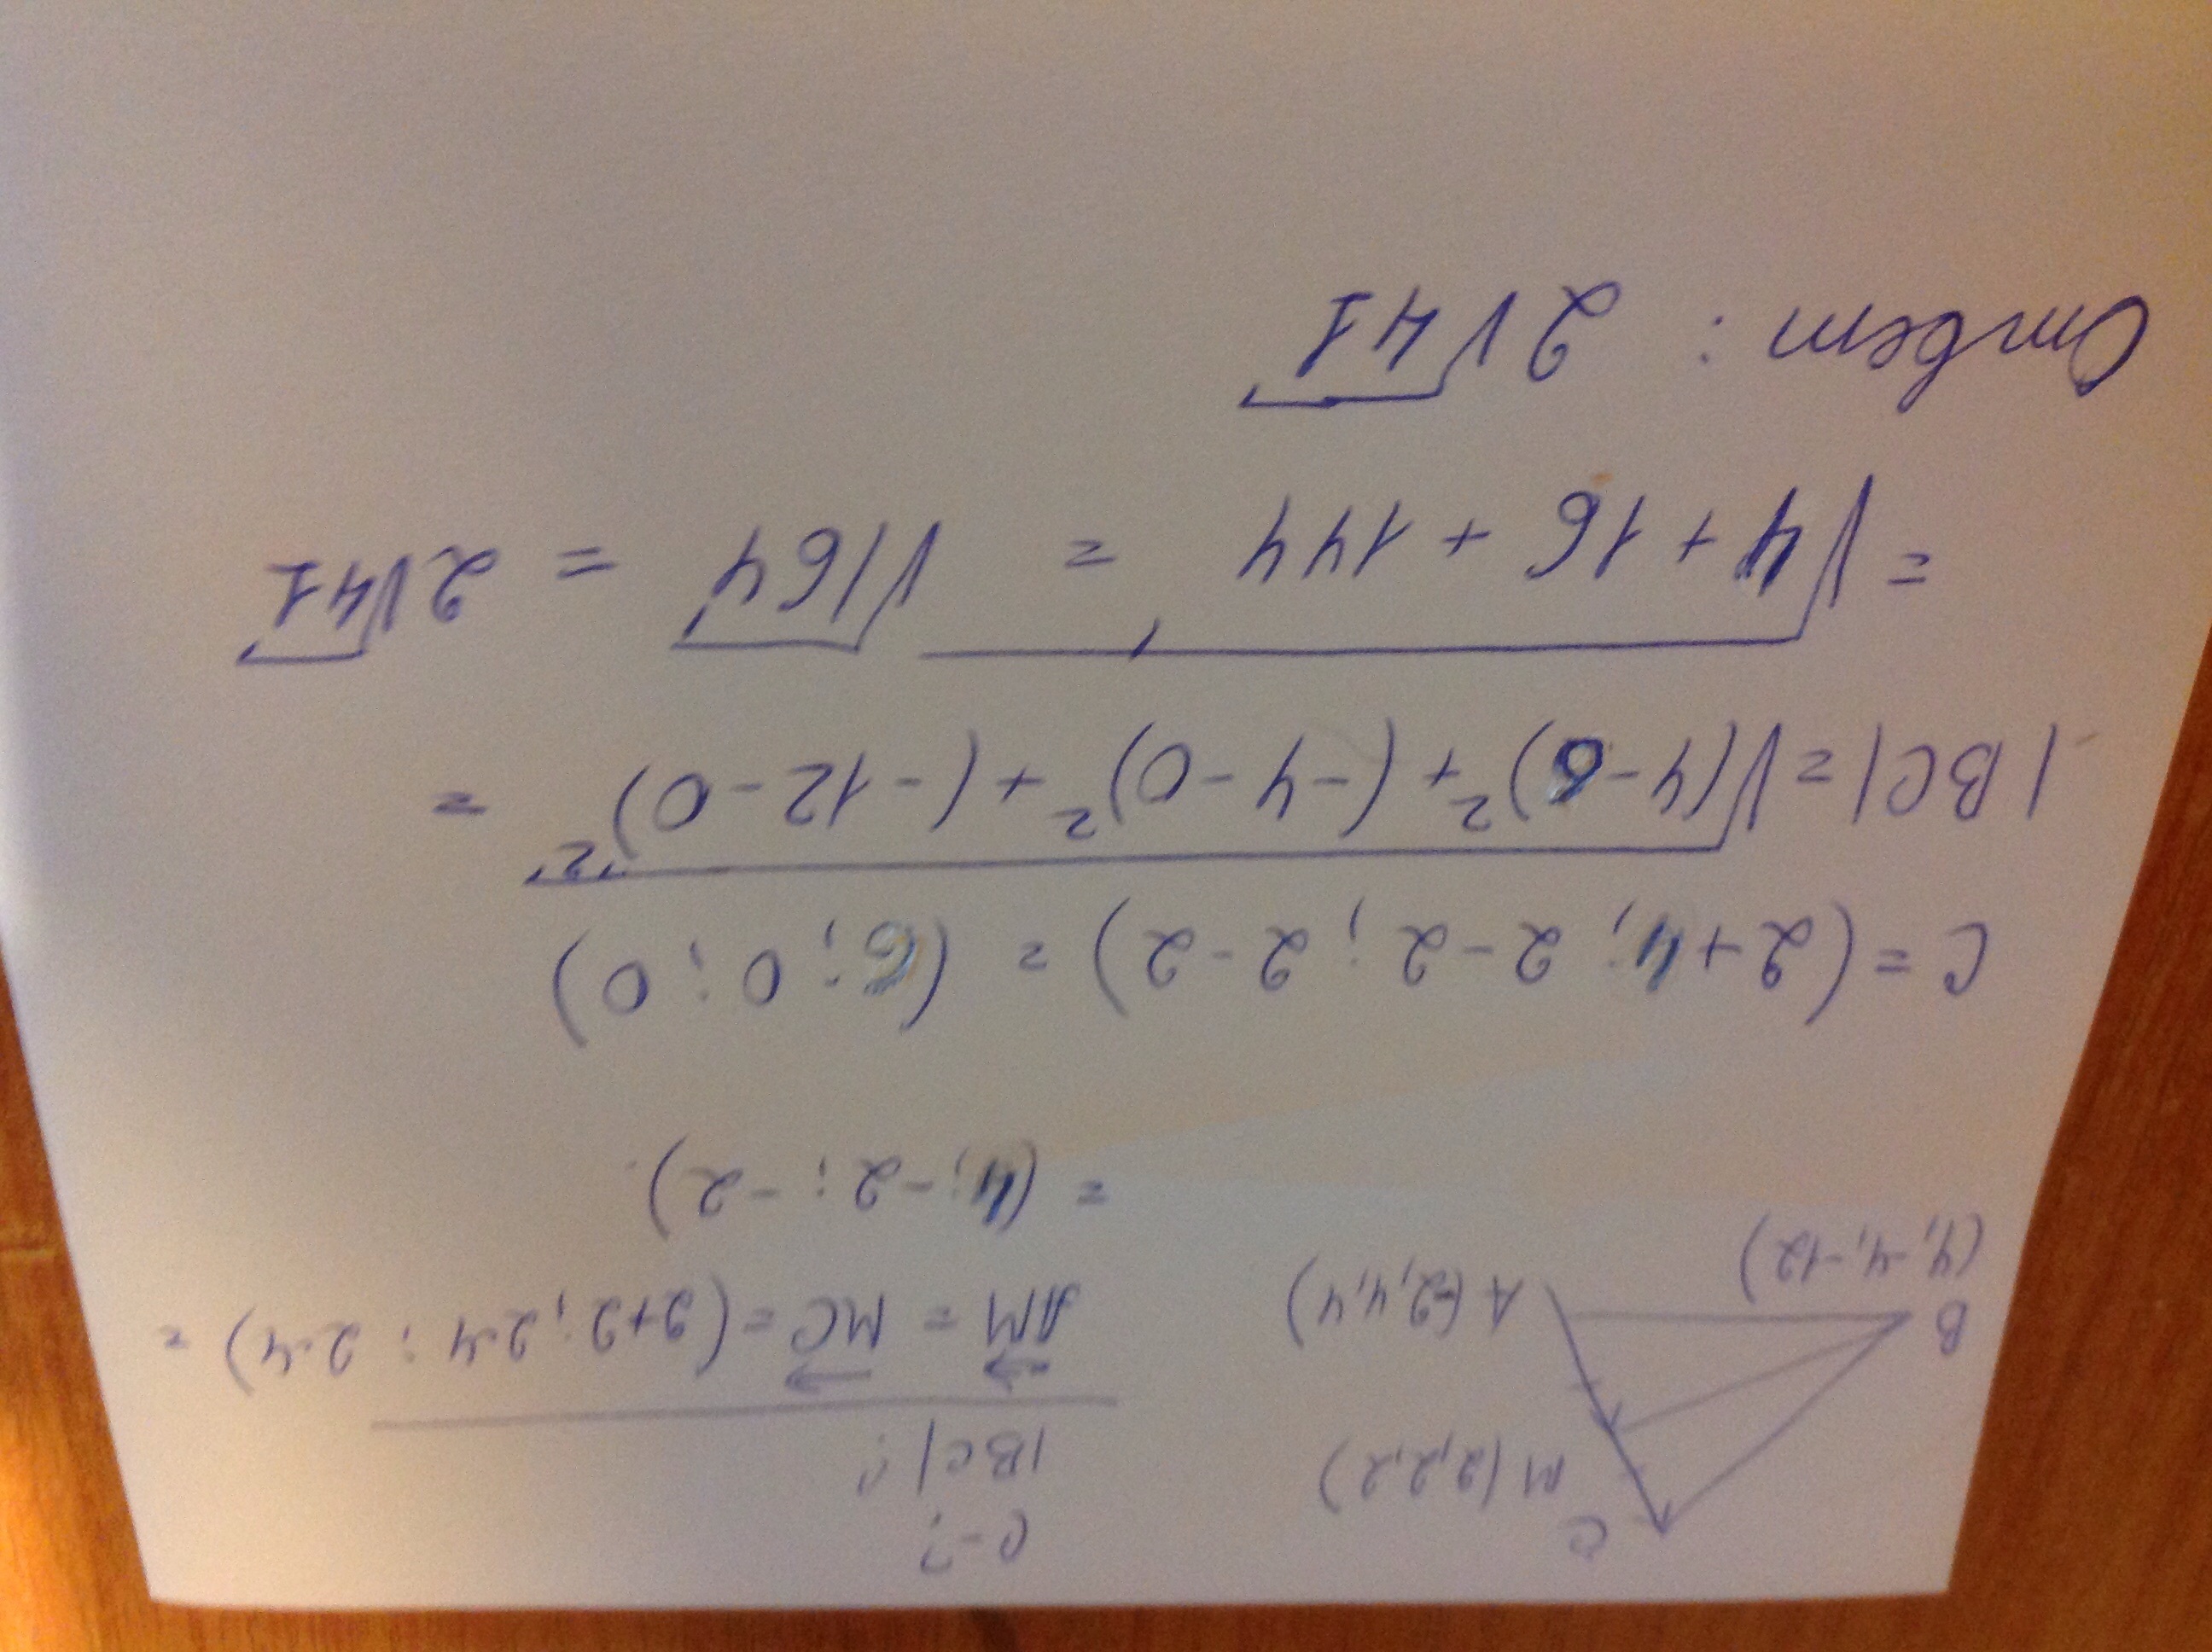 C
C-?
M(2,2,2)
|BC|?
A(-2,4,4)
AM = MC = (2+2; 2-4; 2-4) =
B
(4,-4,-12)
= (4; -2; -2)
C = (2+4; 2-2; 2-2) = (6; 0; 0)
|BC| = √(4-6)²+(-4-0)²+(-12-0)² =
= √4+16+144 = √164 = 2√41
Ответ: 2√41